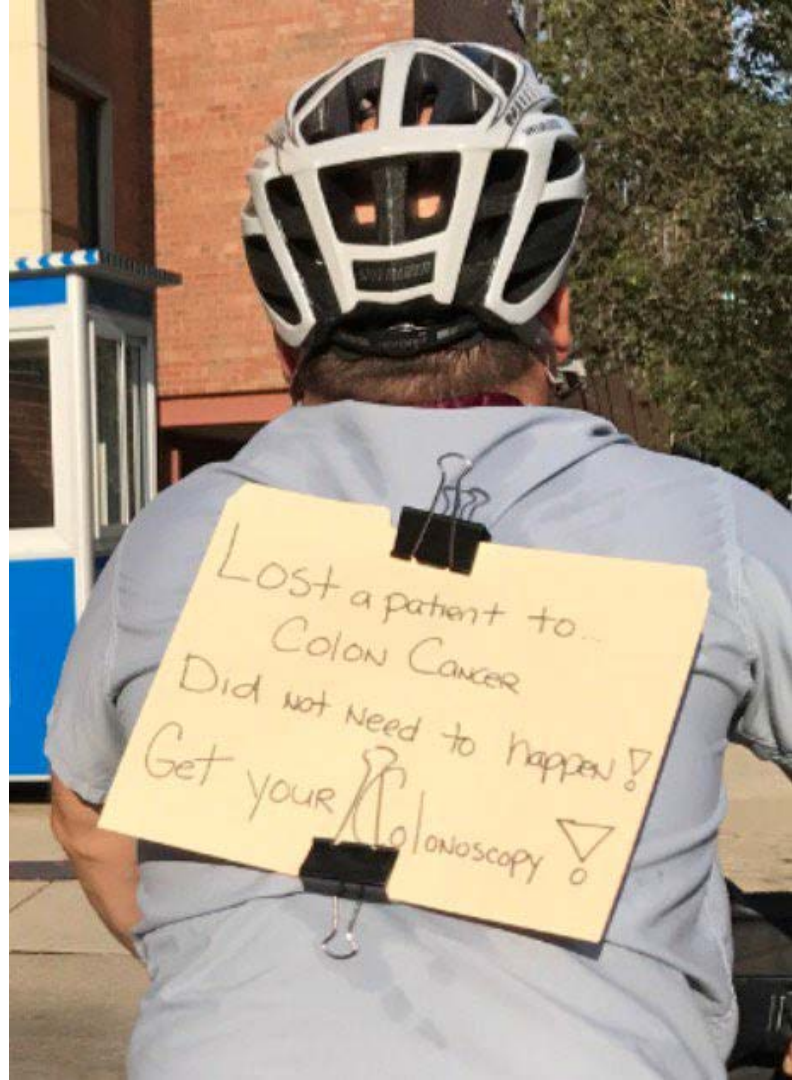 Lost a patient to...
Colon Cancer
Did not need to happen!
Get your Colonoscopy!